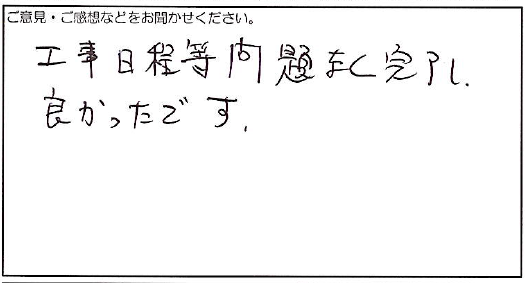 ご意見・ご感想などをお聞かせください。
工事日程等問題なく完了し、
良かったです。